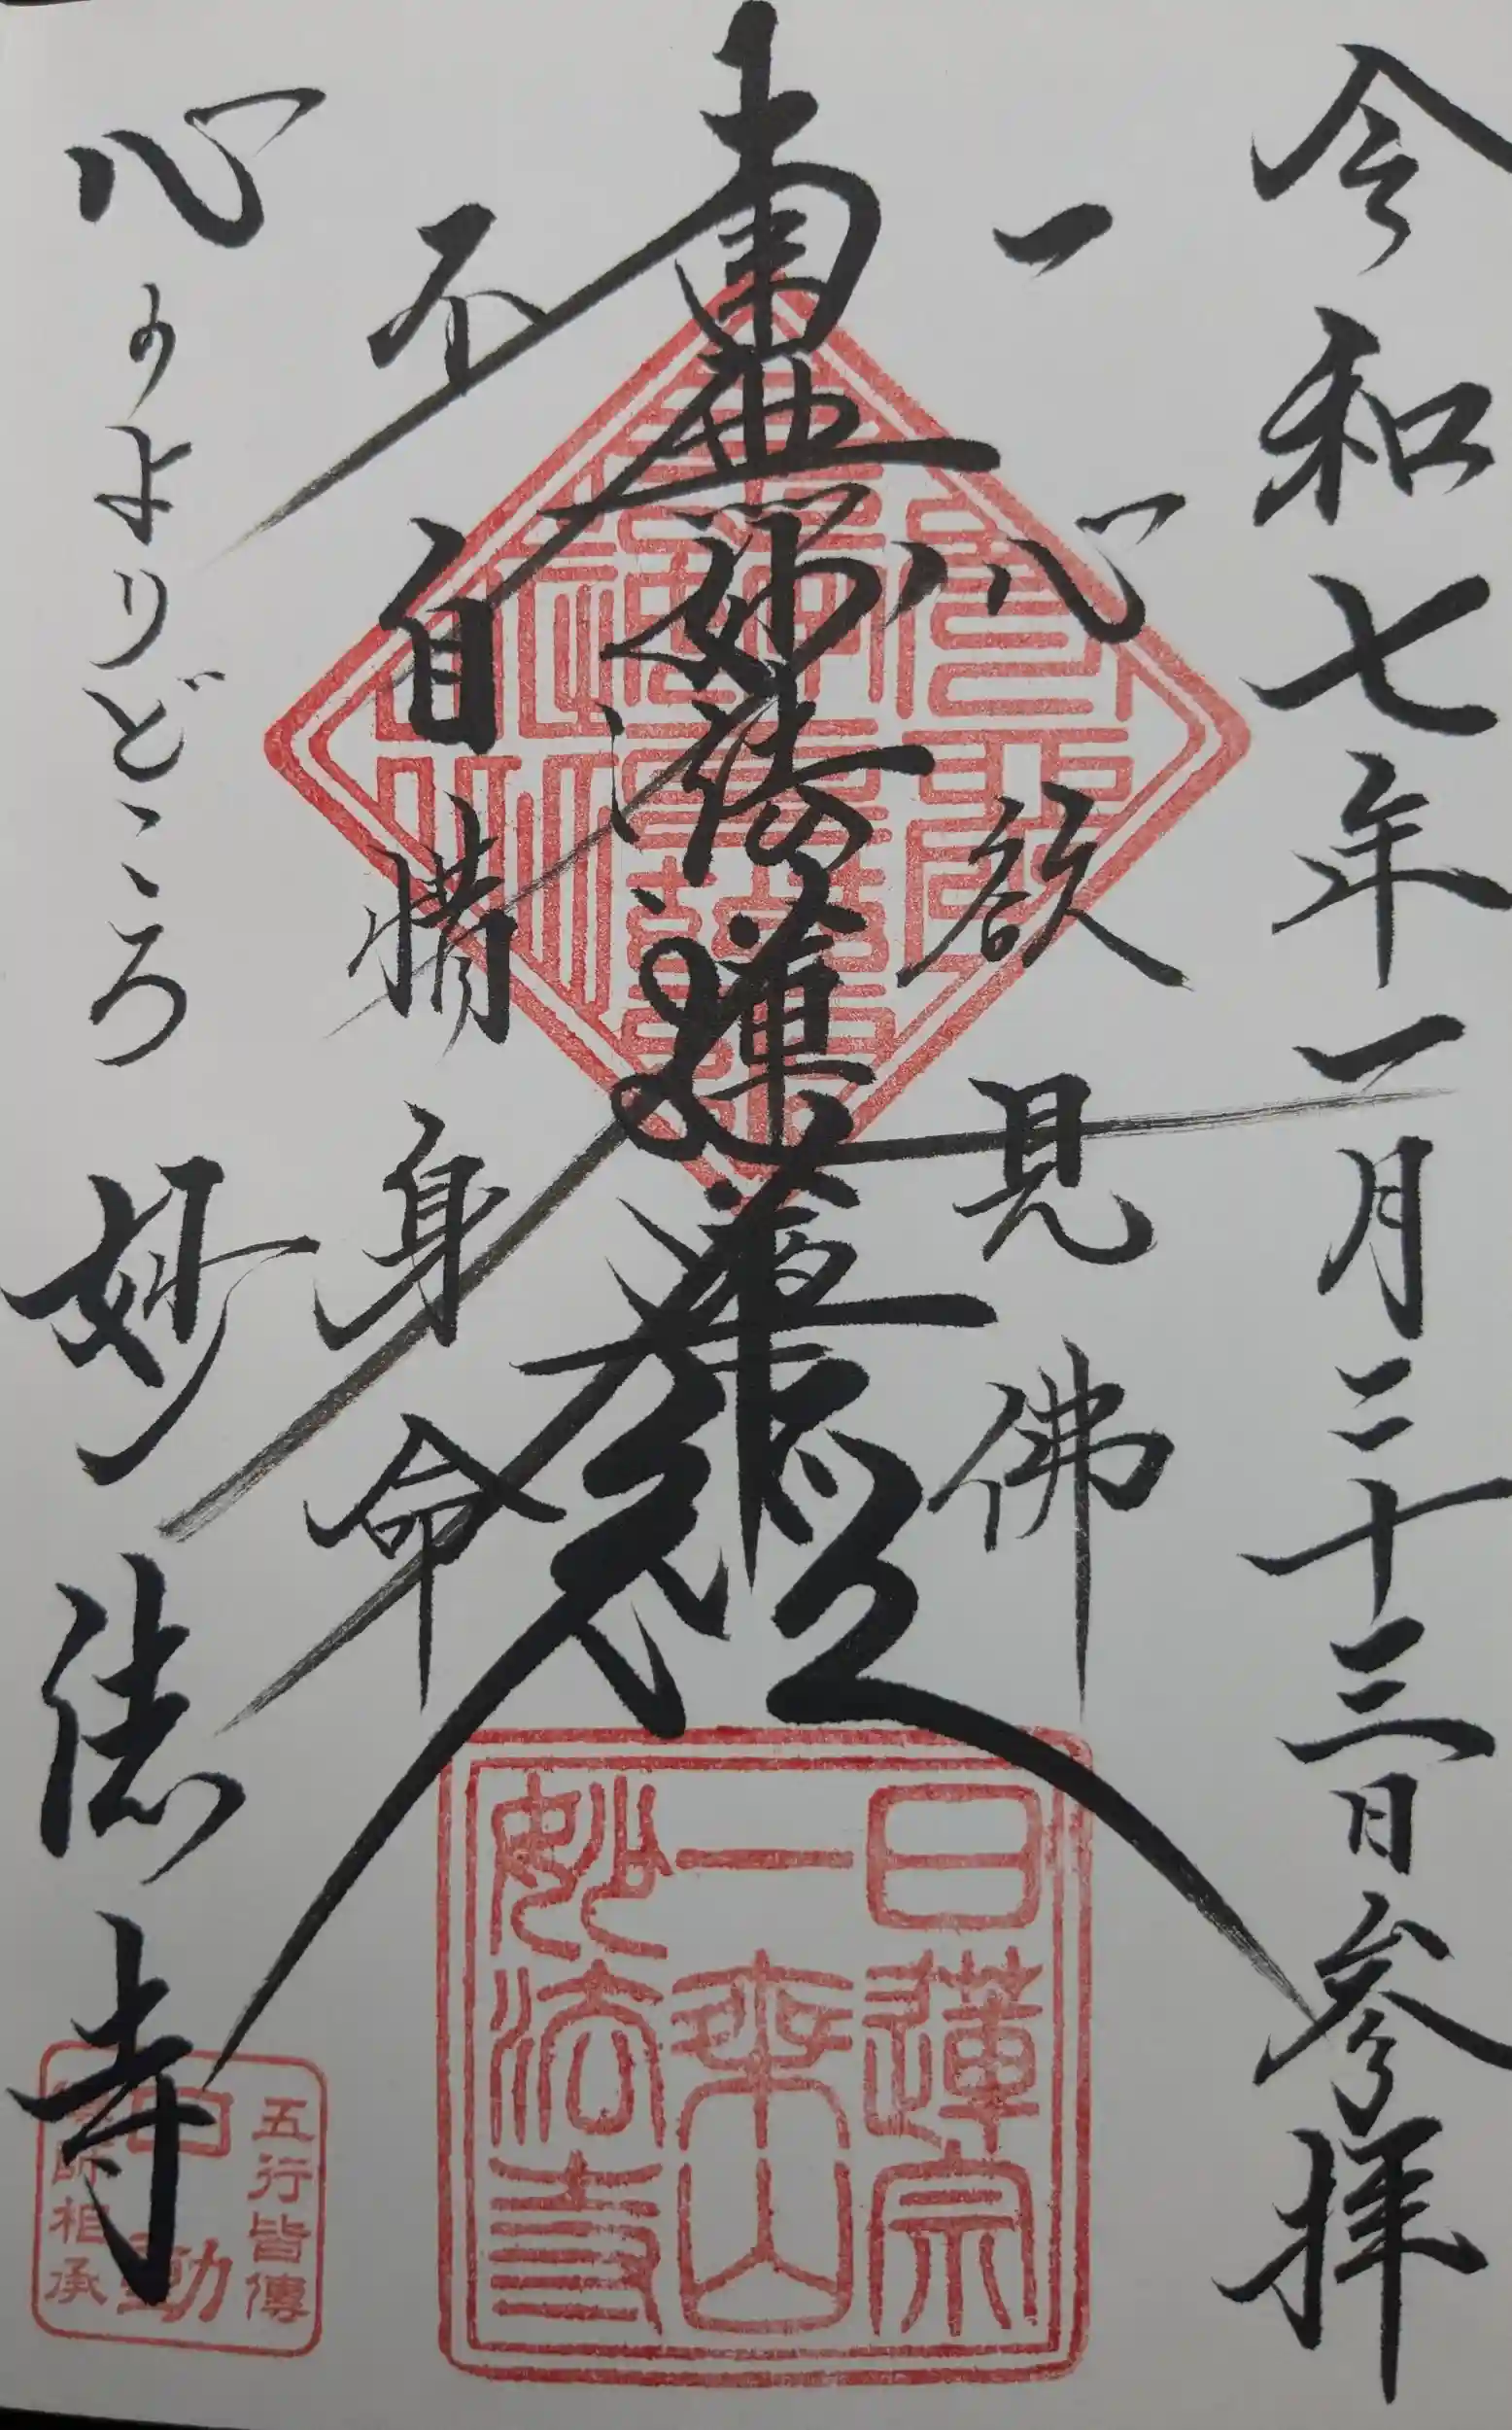 令和七年一月二十三日参拝
一心欲見佛
南無妙法蓮華経
不自惜身命
心のよりどころ 妙法寺
日蓮宗
一乗山
妙法寺
五行皆傳
師相承